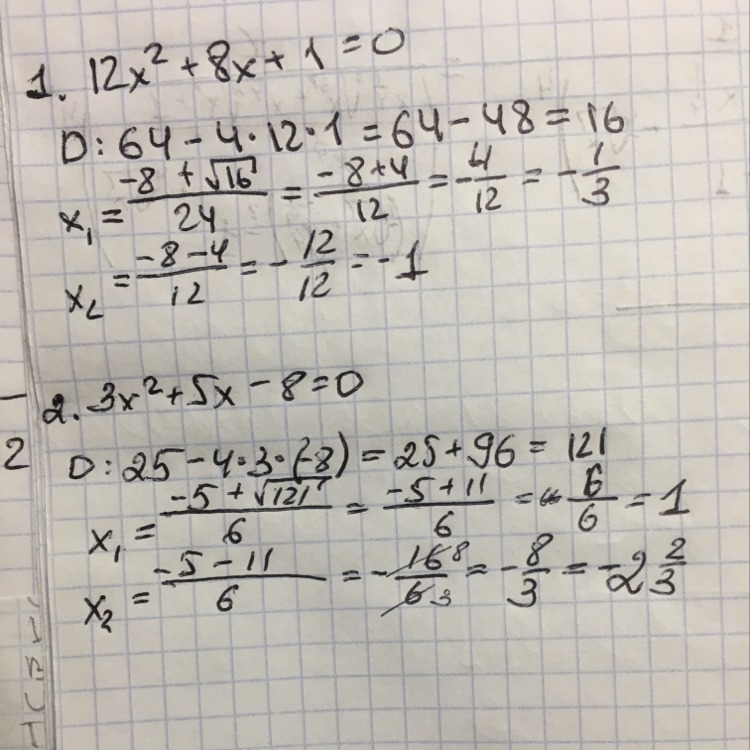 1. 12x² + 8x + 1 = 0
D: 64 - 4·12·1 = 64 - 48 = 16
x₁ = (-8 + √16)/24 = (-8+4)/12 = -4/12 = -1/3
x₂ = (-8-4)/12 = -12/12 = -1
2. 3x² + 5x - 8 = 0
2
D: 25 - 4·3·(-8) = 25 + 96 = 121
x₁ = (-5 + √121)/6 = (-5+11)/6 = 6/6 = 1
x₂ = (-5 - 11)/6 = -16 8/6 3 = -8/3 = -2 2/3